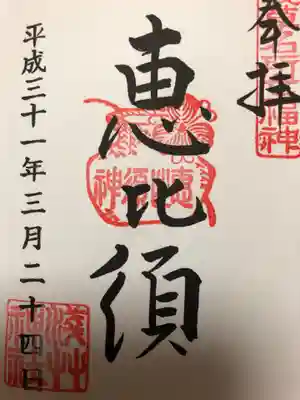 奉拝
恵比須
平成三十一年三月二十四日
恵比須神
浅草神社